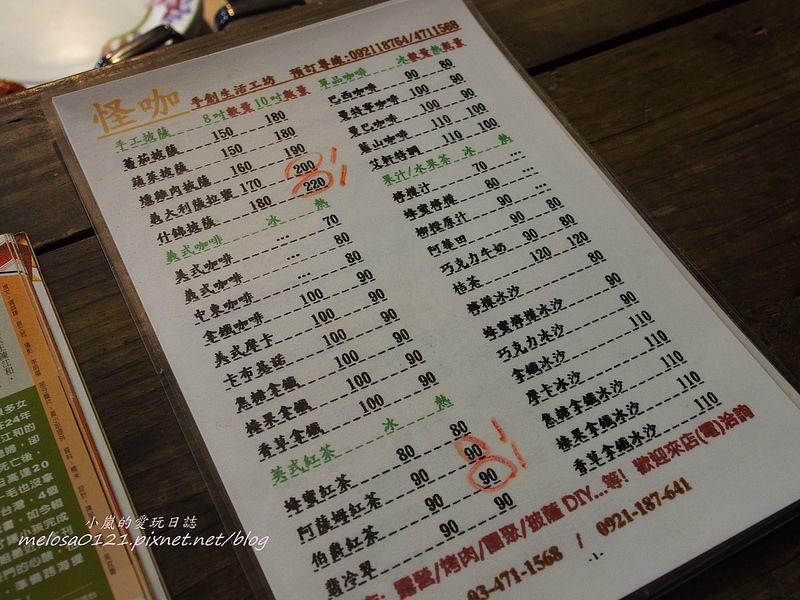 怪咖 手創生活工坊 預訂專線:092118764/4711568
手工披薩 8吋數量 10吋數量
蕃茄披薩 150 180
蔬菜披薩 150 180
燻雞肉披薩 160 190
義大利薩拉蜜 170 200
什錦披薩 180 220
美式咖啡 冰 熱
美式咖啡 ... 70
美式咖啡 ... 80
中東咖啡 ... 80
拿鐵咖啡 100 90
美式摩卡 100 90
卡布基諾 100 90
焦糖拿鐵 100 90
榛果拿鐵 100 90
香草拿鐵 100 90
美式紅茶 冰 熱
蜂蜜紅茶 80 80
阿薩姆紅茶 90 90
伯爵紅茶 90 90
翡冷翠 90
單品咖啡 冰數量 熱數量
巴西咖啡 90 80
曼特寧咖啡 100 90
東巴咖啡 100 90
藍山咖啡 110 100
艾軒特調 110 100
果汁/水果茶 冰 熱
檸檬汁 70 ...
蜂蜜檸檬 80 ...
柳橙原汁 90 ...
阿華田 90 80
巧克力牛奶 90 80
桔茶 120 120
檸檬冰沙 80
蜂蜜檸檬冰沙 90
巧克力冰沙 90
拿鐵冰沙 90
摩卡冰沙 110
焦糖拿鐵冰沙 110
榛果拿鐵冰沙 110
香草拿鐵冰沙 110
露營/烤肉/團聚/披薩 DIY...等! 歡迎來店(電)洽詢
03-471-1568 / 0921-187-641
-1-
小嵐的愛玩日誌
melosa0121.pixnet.net/blog